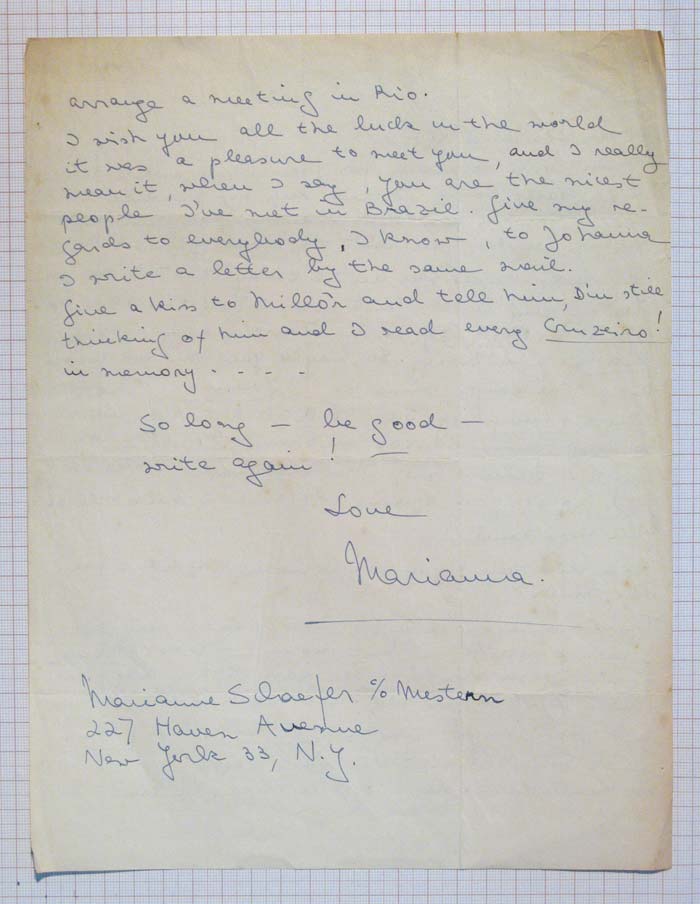 arrange a meeting in Rio.
I wish you all the luck in the world
it was a pleasure to meet you, and I really
mean it, when I say, you are the nicest
people I've met in Brazil. Give my re-
gards to everybody, I know, to Johanna
I write a letter by the same mail.
Give a kiss to Millôr and tell him, I'm still
thinking of him and I read every Cruzeiro!
in memory - - - -
So long — be good —
write again!
Love
Marianna.
Marianne Schaefer c/o Mestern
227 Haven Avenue
New York 33, N.Y.